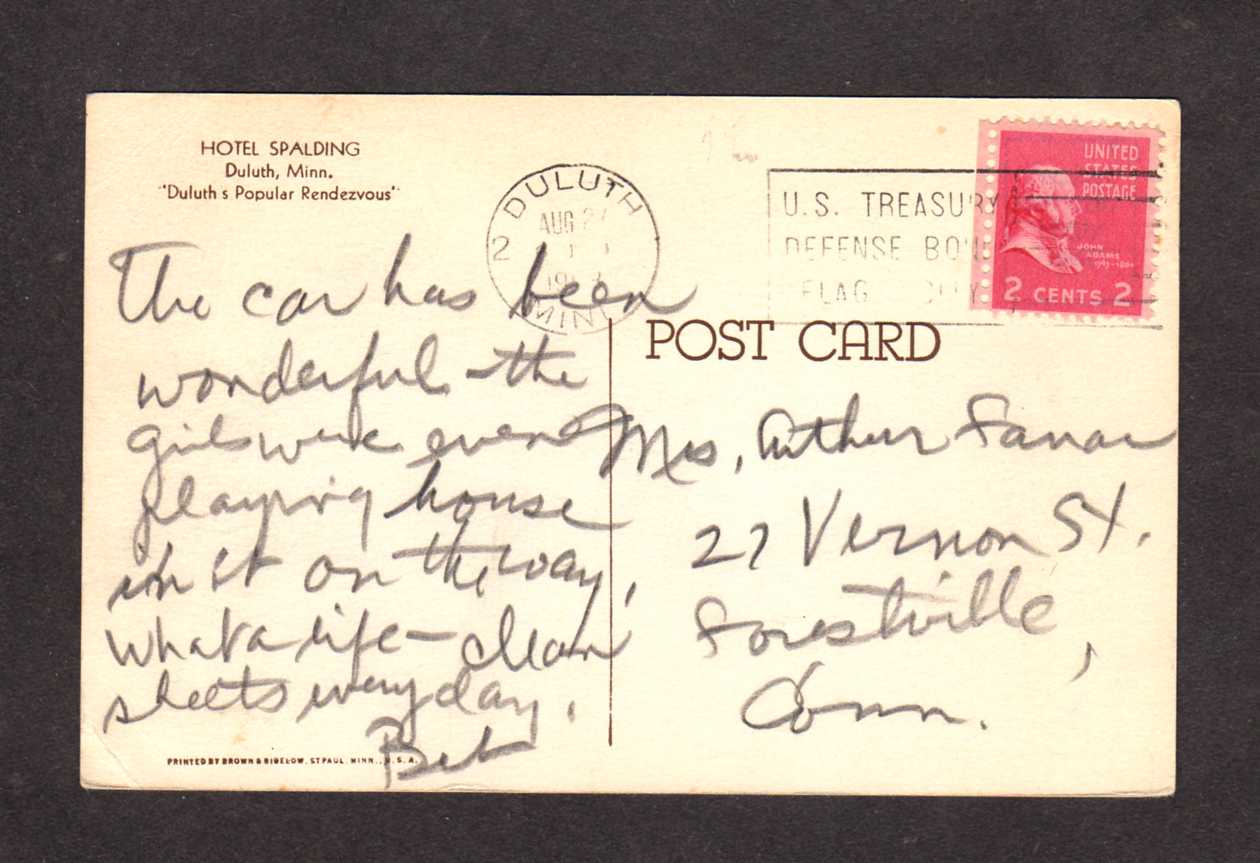 HOTEL SPALDING
Duluth, Minn.
"Duluth s Popular Rendezvous"
DULUTH
AUG 27
2
MINN
U.S. TREASURY
DEFENSE BON
FLAG CITY
UNITED
STATES
POSTAGE
JOHN
ADAMS
2 CENTS 2
POST CARD
The car has been
wonderful - the
girls were even
playing house
in it on the way.
What a life - clean
sheets every day.
Bet
Mrs. Arthur
27 Vernon St.
Forestville,
Conn.
PRINTED BY BROWN & BIGELOW, ST PAUL, MINN., U.S.A.